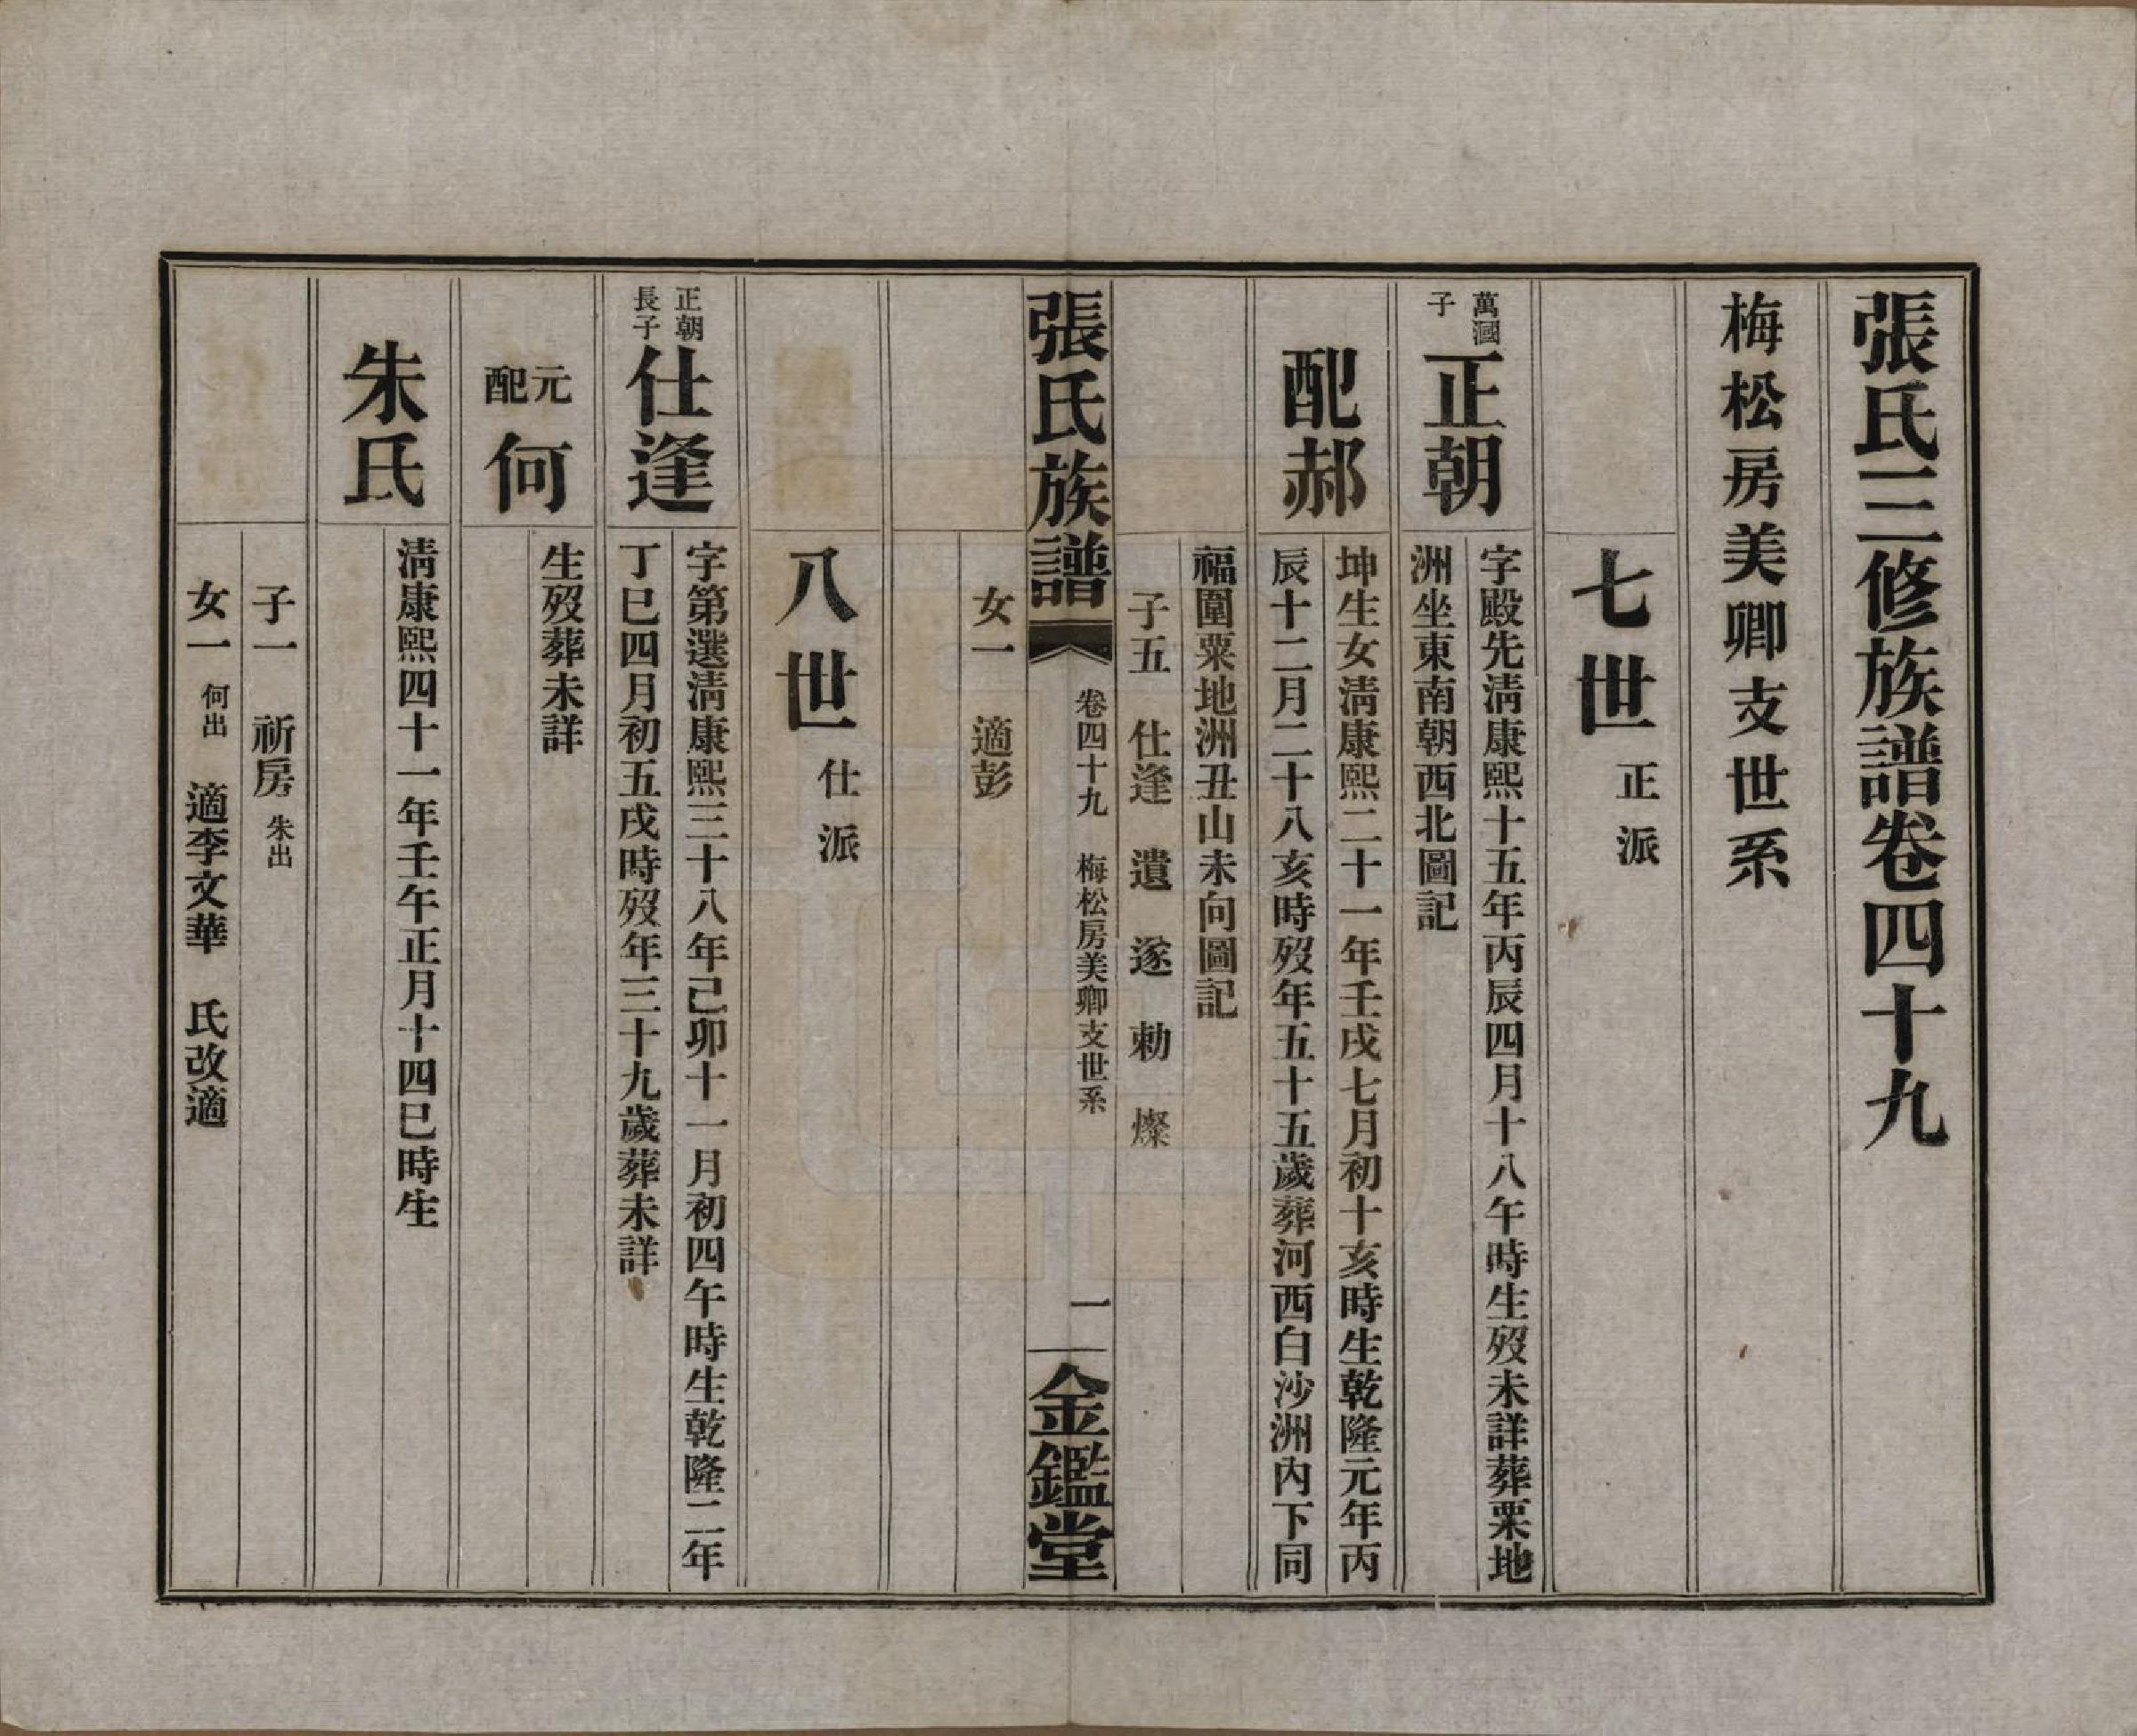 張氏三修族譜卷四十九
梅松房美卿支世系
七世 正派
萬國子
正朝
字殿先淸康熙十五年丙辰四月十八午時生歿未詳葬栗地
洲坐東南朝西北圖記
配郝
坤生女淸康熙二十一年壬戌七月初十亥時生乾隆元年丙
辰十二月二十八亥時歿年五十五歲葬河西白沙洲內下同
福圍粟地洲丑山未向圖記
子五 仕逢 遺 遂 勅 燦
張氏族譜 卷四十九 梅松房美卿支世系 一 金鑑堂
女一 適彭
八世 仕派
正朝長子
仕逢
字第選淸康熙三十八年己卯十一月初四午時生乾隆二年
丁巳四月初五戌時歿年三十九歲葬未詳
元配
何
生歿葬未詳
朱氏
淸康熙四十一年壬午正月十四巳時生
子一 祈房 朱出
女一 何出 適李文華 氏改適